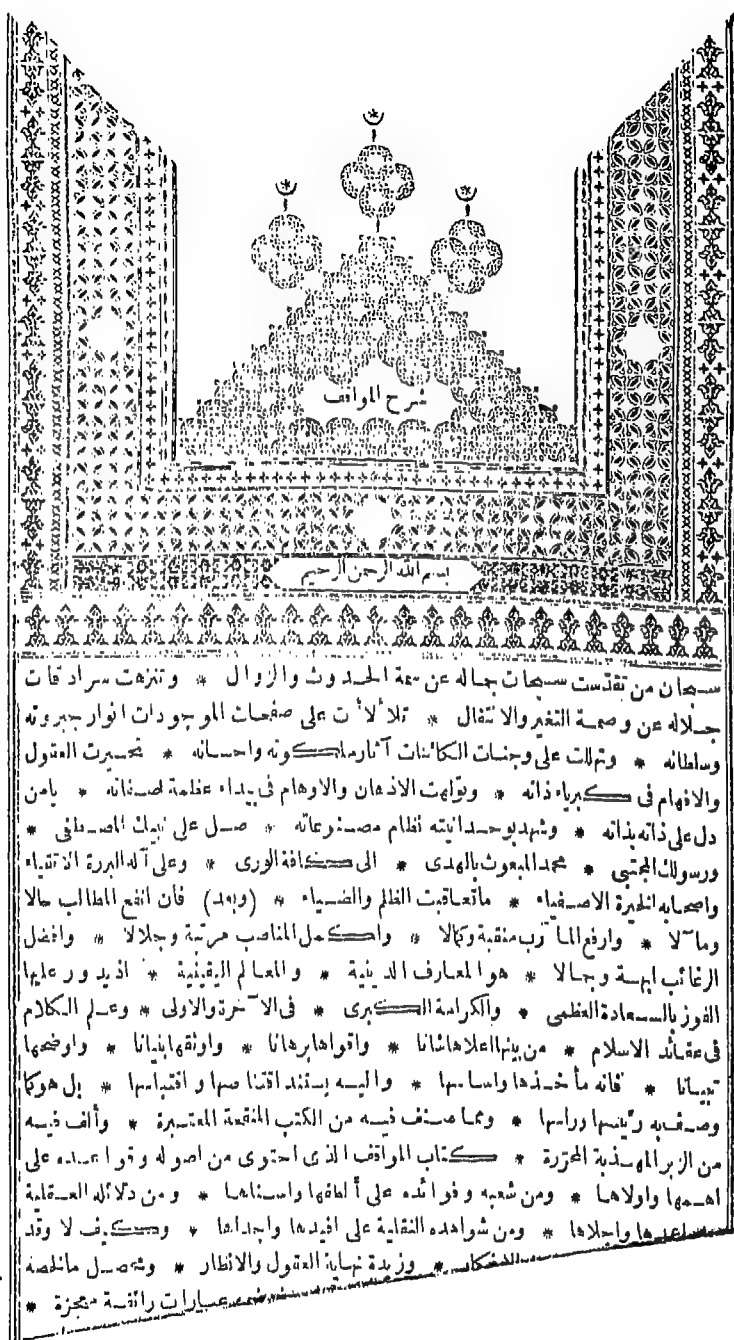 شرح المواقف
بسم الله الرحمن الرحيم
سبحان من تقدست سبحات جماله عن سمة الحدوث والزوال * وتنزهت سرادقات
جلاله عن وصمة التغير والانتقال * تلألأت على صفحات الموجودات انوار جبروته
وسلطانه * وتهللت على وجنات الكائنات آثار ملكوته واحسانه * تحيرت العقول
والافهام في كبرياء ذاته * وتولهت الاذهان والاوهام في بيداء عظمة صفاته * يامن
دل على ذاته بذاته * وشهد بوحدانيته نظام مصنوعاته * صل على نبيك المصطفى *
ورسولك المجتبى * محمد المبعوث بالهدى * الى كافة الورى * وعلى آله البررة الاتقياء
واصحابه الخيرة الاصفياء * ماتعاقبت الظلم والضياء * (وبعد) فان انفع المطالب حالا
ومآلا * وارفع المآرب منقبة وكمالا * واكمل المناصب مرتبة وجلالا * وافضل
الرغائب ابهة وجمالا * هو المعارف الدينية * والمعالم اليقينية * اذ يدور عليها
الفوز بالسعادة العظمى * والكرامة الكبرى * في الآخرة والاولى * وعلم الكلام
في عقائد الاسلام * من بينها اعلاها شانا * واقواها برهانا * واوثقها بنيانا * واوضحها
تبيانا * فانه مأخذها واساسها * واليه يستند اقتناصها واقتباسها * بل هو كما
وصف به رئيسها وراسها * ومما صنف فيه من الكتب المنقحة المعتبرة * وألف فيه
من الزبر المهذبة المحررة * كتاب المواقف الذى احتوى من اصوله وقواعده على
اهمها واولاها * ومن شعبه وفوائده على ألطفها واسناها * ومن دلائله العقلية
على اعمدها واجلاها * ومن شواهده النقلية على افيدها واجداها * وكيف لا وقد
الافكار * وزبدة نهاية العقول والانظار * ومحصل مالخصه
عبارات رائقة معجزة *